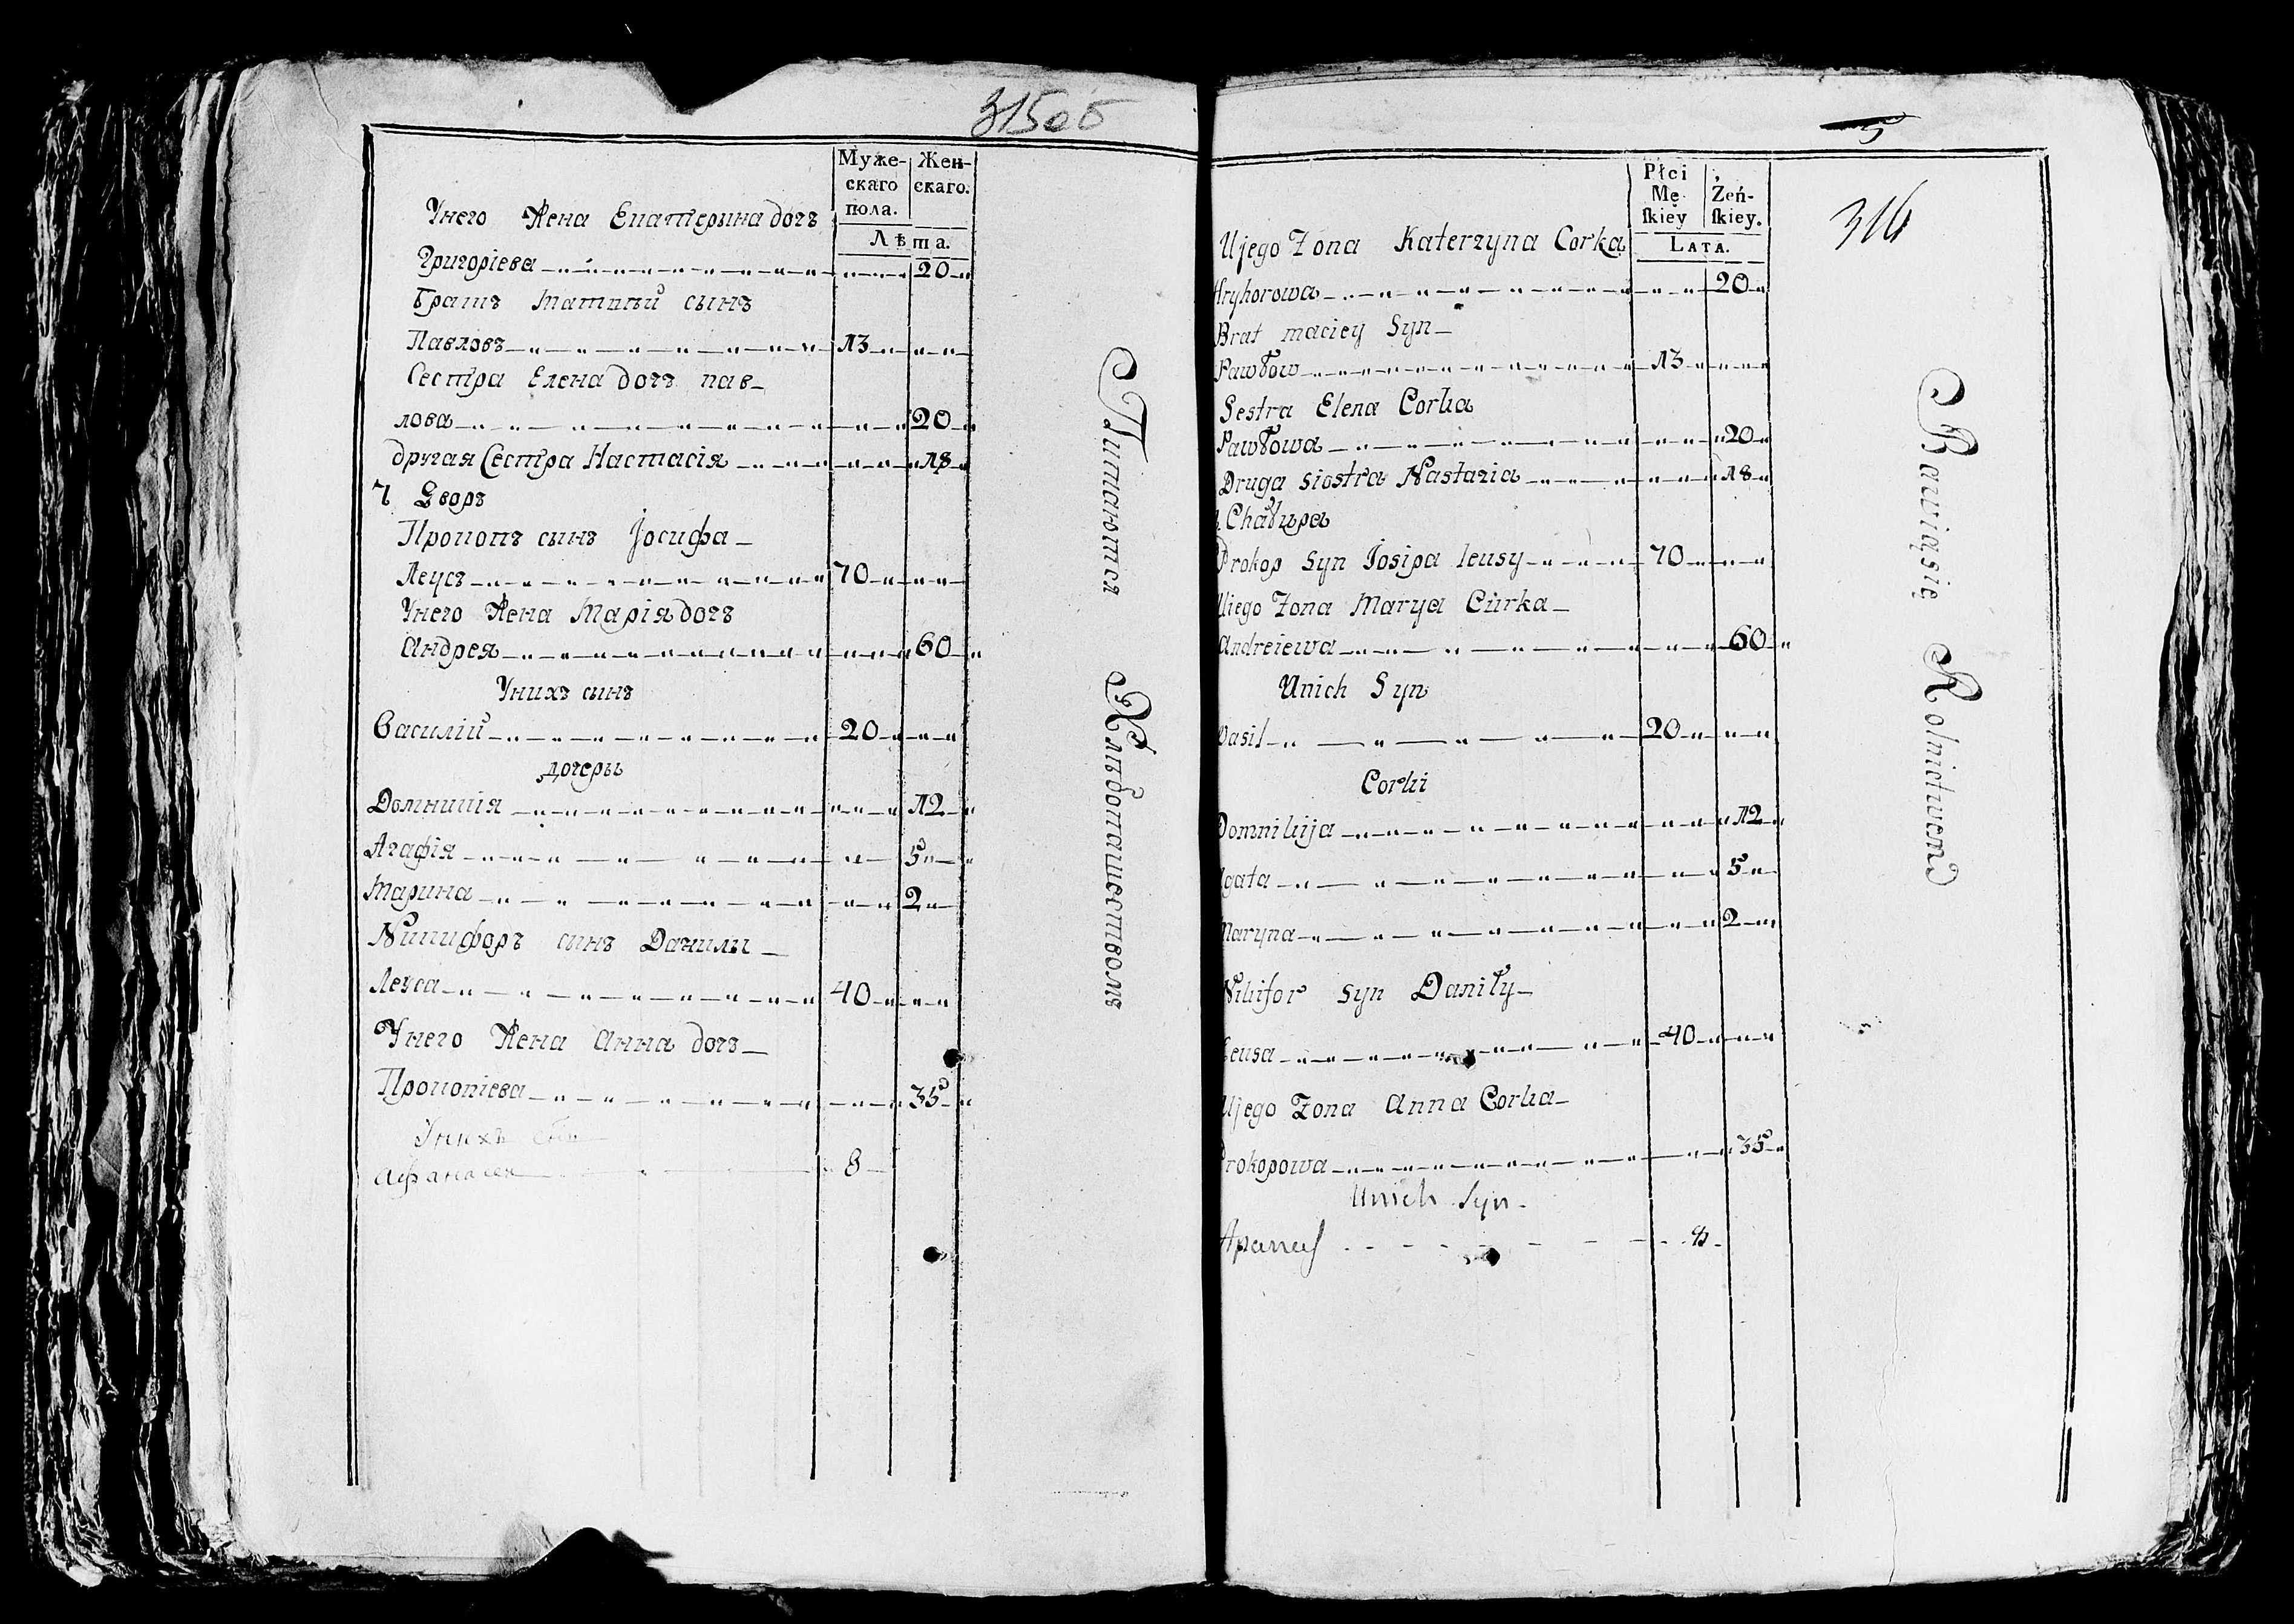 315об
Муже- Жен-
скаго скаго.
пола.
Лѣта.
Унего Жена Екатерина дочъ
Григорiева 20
Братъ Матвѣй сынъ
Павловъ 13
Сестра Елена дочъ пав-
лова 20
другая Сестра Настасiя 18
7 Дворъ
Прокопъ сынъ Iосифа
Леусъ 70
Унего Жена Марiя дочъ
Андрея 60
Унихъ сынъ
Василiй 20
дочеры
Домникiя 12
Агафiя 5
Марина 2
Никифоръ сынъ Данилы
Леуса 40
Унего Жена Анна дочъ
Прокопiева 35
Унихъ сын
Афанасея 8
Питаются Хлѣбопашествомъ
5
316
Płci
Mę- Żeń-
ſkiey ſkiey.
LATA.
Ujego Zona Katerzyna Corka
Hryhorowa 20
Brat maciey Syn
Pawłow 13
Sestra Elena Corka
Pawłowa 20
Druga siostra Nastazia 18
Chałupa
Prokop Syn Josipa leusy 70
Ujego Zona Marya Curka
Andreiewa 60
Unich Syn
Wasil 20
Corki
Domnikija 12
Agata 5
Maryna 2
Nikifor Syn Daniły
Leusa 40
Ujego Zona Anna Corka
Prokopowa 35
Unich Syn
Apanas 8
Bawiąsię Rolnictwem